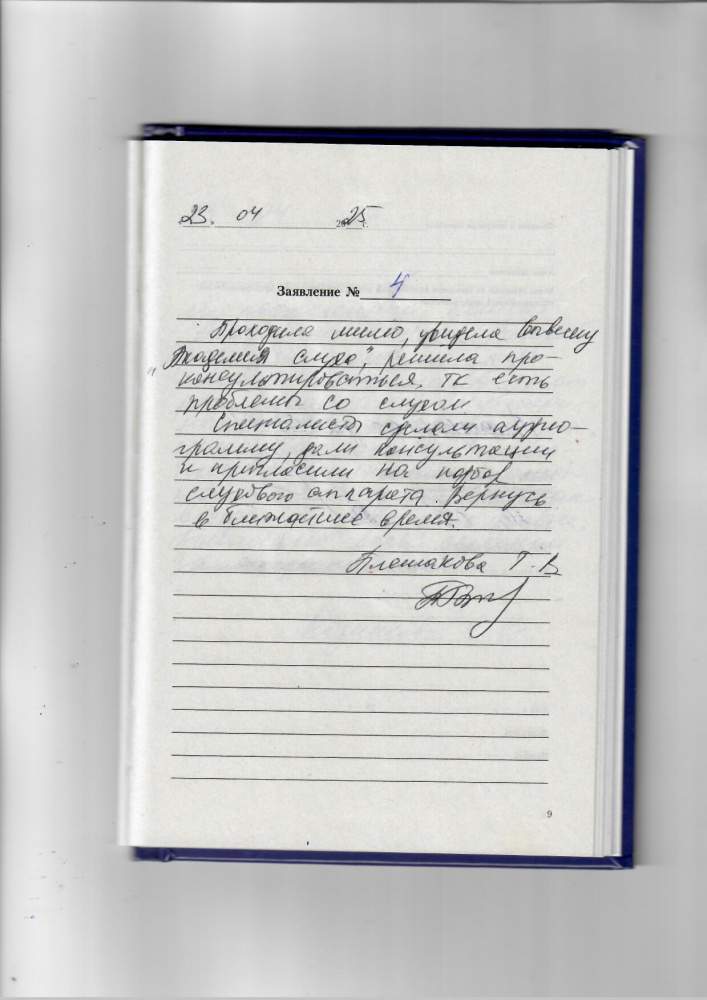 23. 04 2025 г.
Заявление № 4
Проходила мимо, увидела вывеску
„Академия слуха", решила про-
консультироваться, тк есть
проблемы со слухом
Специалисты сделали аудио-
грамму, дали консультации
и пригласили на подбор
слухового аппарата. Вернусь
в ближайшее время.
Плешакова Т. В
9